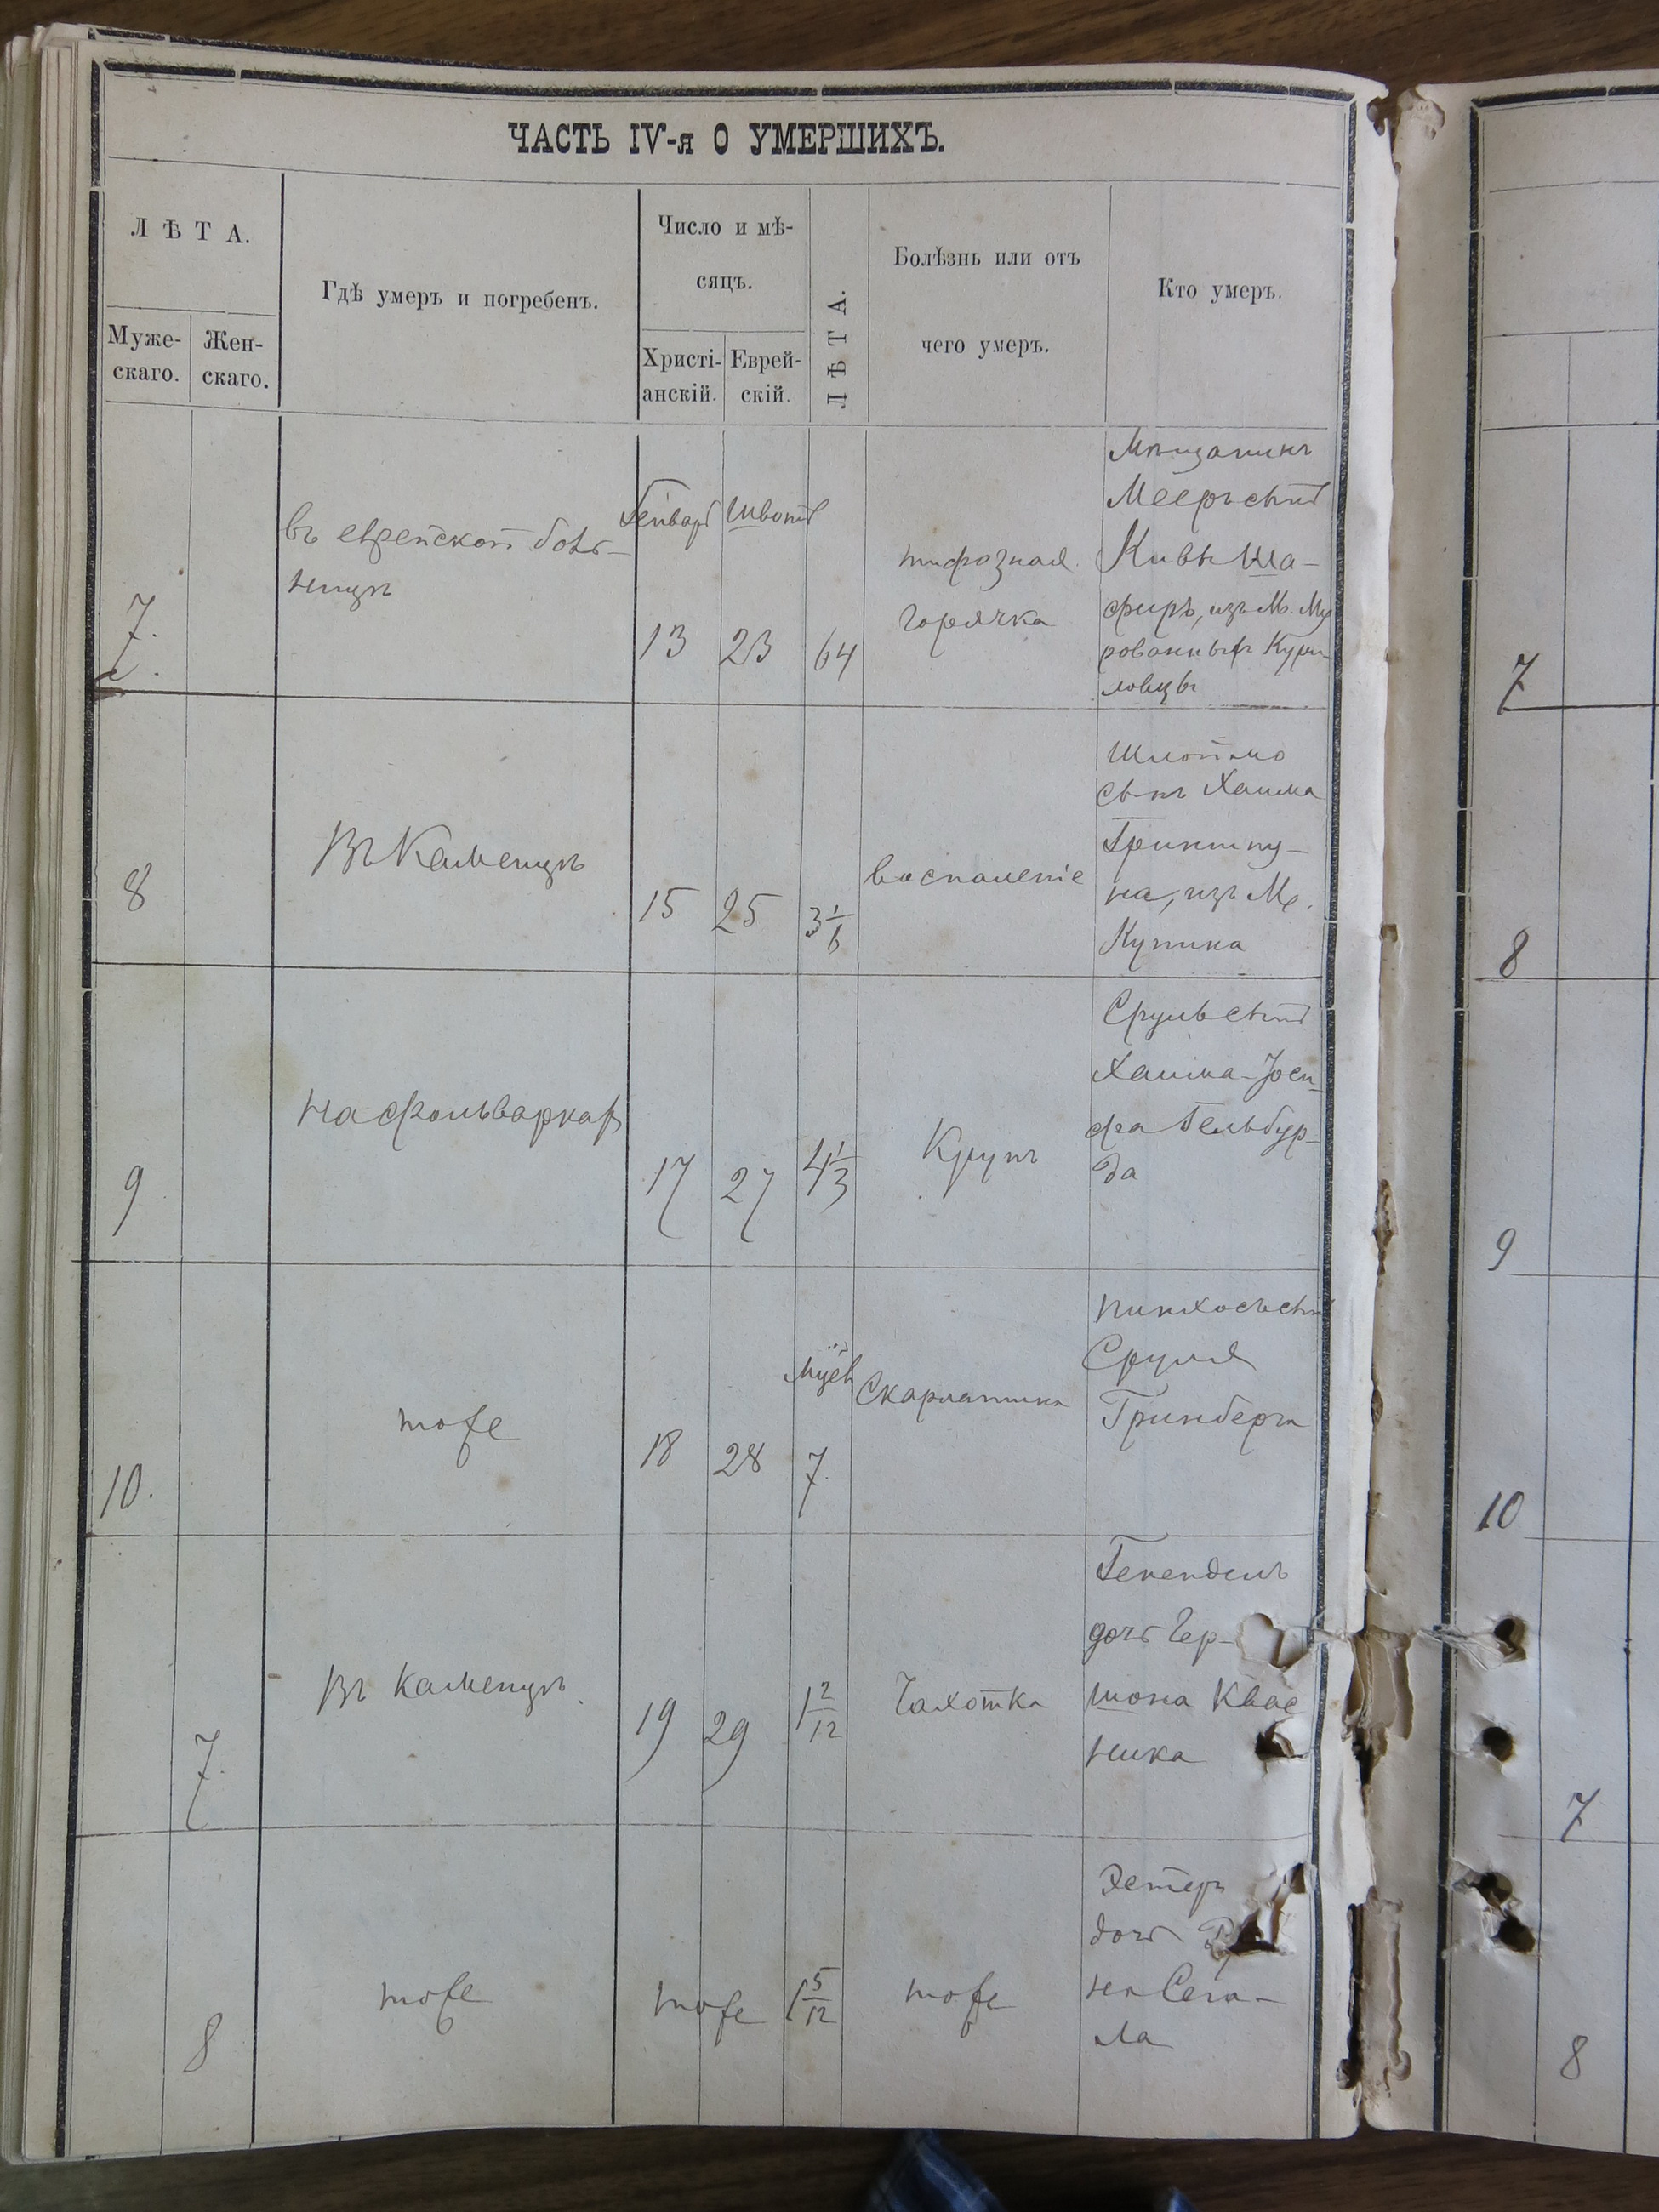 ЧАСТЬ IV-я О УМЕРШИХЪ.
ЛѢТА.
Муже-
скаго.
Жен-
скаго.
Гдѣ умеръ и погребенъ.
Число и мѣ-
сяцъ.
Христі-
анскій.
Еврей-
скій.
ЛѢТА.
Болѣзнь или отъ
чего умеръ.
Кто умеръ.
7.
въ еврейской боль-
ницѣ
Генварь
13
Швотъ
23
64
тифозная
горячка
Мѣщанинъ
Мееръ сынъ
Кивы Ша-
фиръ, изъ М. Му
рованныхъ Кури-
ловцы
7
8
Въ Каменцѣ
15
25
3 1/6
воспаленіе
Шлоймо
сынъ Хаима
на, изъ М.
Купина
8
9
на фольваркахъ
17
27
4 1/3
Крупъ
Сруль сынъ
Хаима-Іоси-
фа Гельбур-
да
9
10.
тоже
18
28
7.
Скарлатина
Пинхосъ сынъ
Сруля
Гринберга
10
7.
Въ Каменцѣ
19
29
1 2/12
Чахотка
Генендель
дочь Гер-
шонаКвас
ника
7
8
тоже
тоже
1 5/12
тоже
Эстеръ
дочь
на Сега-
ла
8